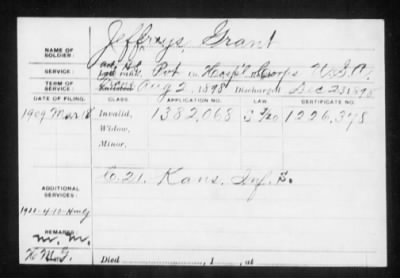 Jeffreys, Grant
NAME OF SOLDIER:
SERVICE: rank, Pvt in Hosp'l Corps U.S.A.
TERM OF SERVICE: Enlisted Aug 2, 1898 Discharged Dec 23 1898
DATE OF FILING. CLASS. APPLICATION NO. LAW. CERTIFICATE NO.
1909 Mar Invalid, 1382,068 1226,378
Widow,
Minor,
C. 21. Kans. Inf.
ADDITIONAL SERVICES:
REMARKS:
Died , 1 , at